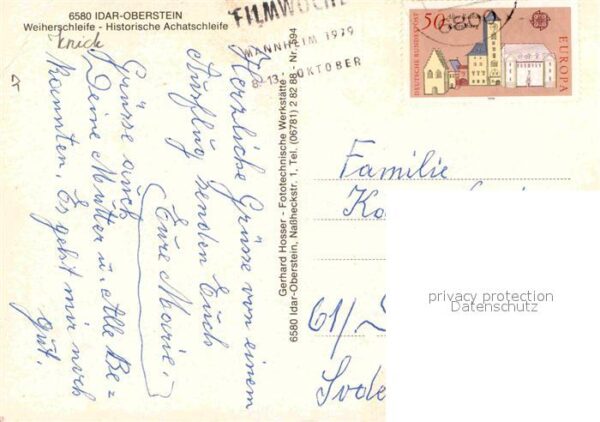 6580 IDAR-OBERSTEIN
Weiherschleife - Historische Achatschleife
Knick
FILMWOCHE
MANNHEIM 1979
8-13. OKTOBER
50
6800
DEUTSCHE BUNDESPOST
EUROPA
Herzliche Grüsse von einem
Ausflug senden Euch
Eure Marie.
Grüsse auch
Deine Mutter u. Alle Be=
kannten. Es geht mir noch
gut.
Gerhard Hosser - Fototechnische Werkstätte - Nr. 594
6580 Idar-Oberstein, Naßheckstr. 1, Tel. (06781) 2 82 88
Familie
61/
privacy protection
Datenschutz